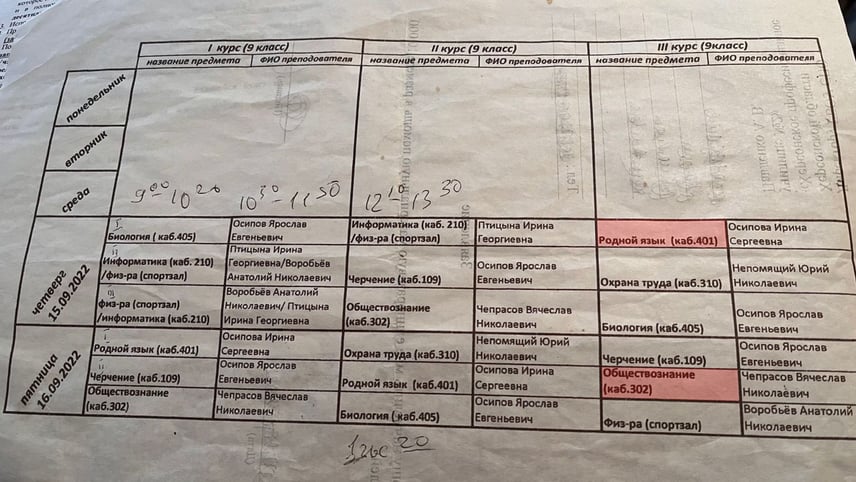 I курс (9 класс) II курс (9 класс) III курс (9класс)
название предмета ФИО преподователя название предмета ФИО преподователя название предмета ФИО преподователя
понедельник
вторник
среда
9 00 - 10 20 10 30 - 11 50 12 10 - 13 30
четверг
15.09.2022
I
Биология ( каб.405)
Осипов Ярослав
Евгеньевич
Информатика (каб. 210)
/физ-ра (спортзал)
Птицына Ирина
Георгиевна
Родной язык (каб.401)
Осипова Ирина
Сергеевна
II
Информатика (каб. 210)
/физ-ра (спортзал)
Птицына Ирина
Георгиевна/Воробьёв
Анатолий Николаевич
Черчение (каб.109)
Осипов Ярослав
Евгеньевич
Охрана труда (каб.310)
Непомящий Юрий
Николаевич
III
физ-ра (спортзал)
/информатика (каб.210)
Воробьёв Анатолий
Николаевич/ Птицына
Ирина Георгиевна
Обществознание
(каб.302)
Чепрасов Вячеслав
Николаевич
Биология (каб.405)
Осипов Ярослав
Евгеньевич
пятница
16.09.2022
I
Родной язык (каб.401)
Осипова Ирина
Сергеевна
Охрана труда (каб.310)
Непомящий Юрий
Николаевич
Черчение (каб.109)
Осипов Ярослав
Евгеньевич
II
Черчение (каб.109)
Осипов Ярослав
Евгеньевич
Родной язык (каб.401)
Осипова Ирина
Сергеевна
Обществознание
(каб.302)
Чепрасов Вячеслав
Николаевич
Обществознание
(каб.302)
Чепрасов Вячеслав
Николаевич
Биология (каб.405)
Осипов Ярослав
Евгеньевич
Физ-ра (спортзал)
Воробьёв Анатолий
Николаевич
20